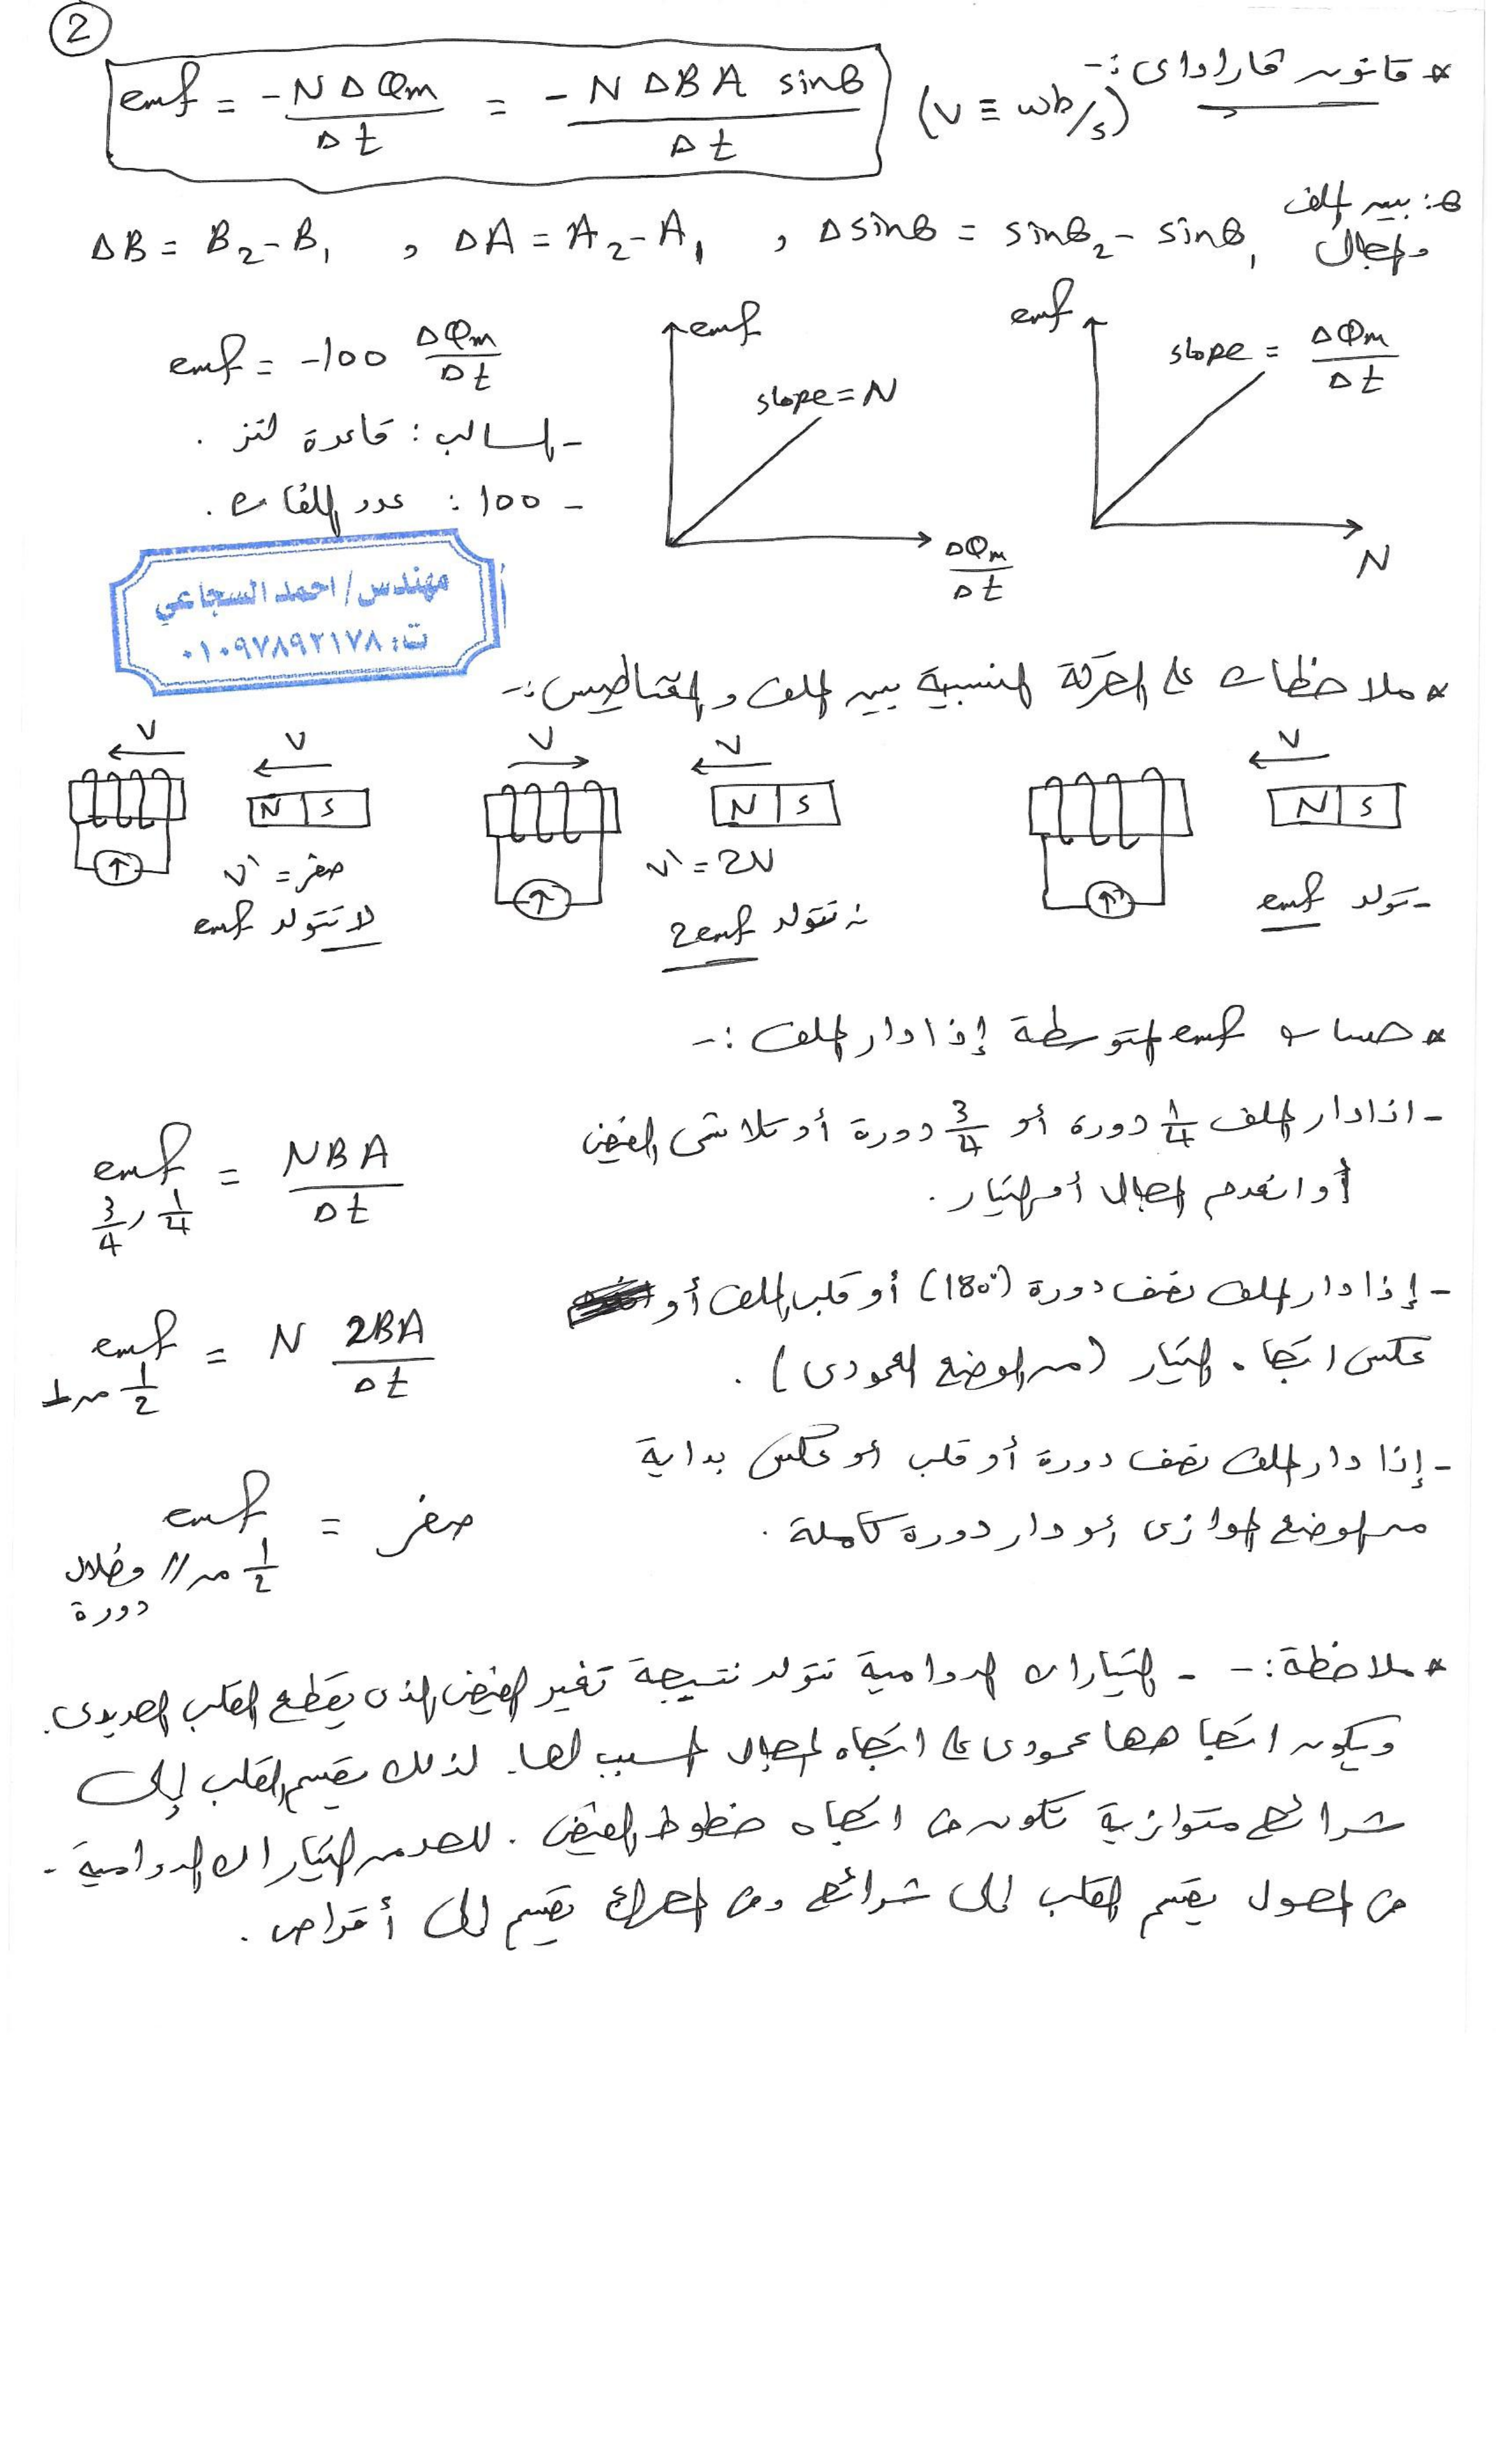 2
* قانون فاراداى :-
emf = -N Δφm / Δt = - N ΔBA sinθ / Δt (V ≡ wb/s)
θ: بين الملف والمجال
ΔB = B2 - B1 , ΔA = A2 - A1 , Δsinθ = sinθ2 - sinθ1
emf = -100 Δφm / Δt
- السالب : قاعدة لنز .
- 100 : عدد اللفات .
emf
slope = N
Δφm / Δt
emf
slope = Δφm / Δt
N
مهندس/ احمد السجاعي
ت: ٠١٠٩٧٨٩٢١٧٨
* ملاحظات على الحركة النسبية بين الملف والمغناطيس :-
V
N S
- تتولد emf
V V
N S
V\ = 2V
∴ تتولد 2emf
V V
N S
V\ = صفر
لا تتولد emf
* حساب emf المتوسطة إذا دار الملف :-
- اذا دار الملف 1/4 دورة أو 3/4 دورة أو تلاشى الفيض
أو انعدم المجال أو التيار .
emf 3/4 , 1/4 = NBA / Δt
- إذا دار الملف نصف دورة (180°) أو قلب الملف أو
عكس اتجاه التيار (من الوضع العمودى) .
emf 1/2 من ⊥ = N 2BA / Δt
- إذا دار الملف نصف دورة أو قلب أو عكس بداية
من الوضع الموازى أو دار دورة كاملة .
emf 1/2 من // وخلال دورة = صفر
* ملاحظة :- - التيارات الدوامية تتولد نتيجة تغير الفيض الذى يقطع القلب الحديدى .
ويكون اتجاهها عمودى على اتجاه المجال المسبب لها . لذلك يقسم القلب إلى
شرائح متوازية تكون فى اتجاه خطوط الفيض . للحد من التيارات الدوامية -
فى المحول يقسم القلب الى شرائح وفى المحرك يقسم الى أقراص .